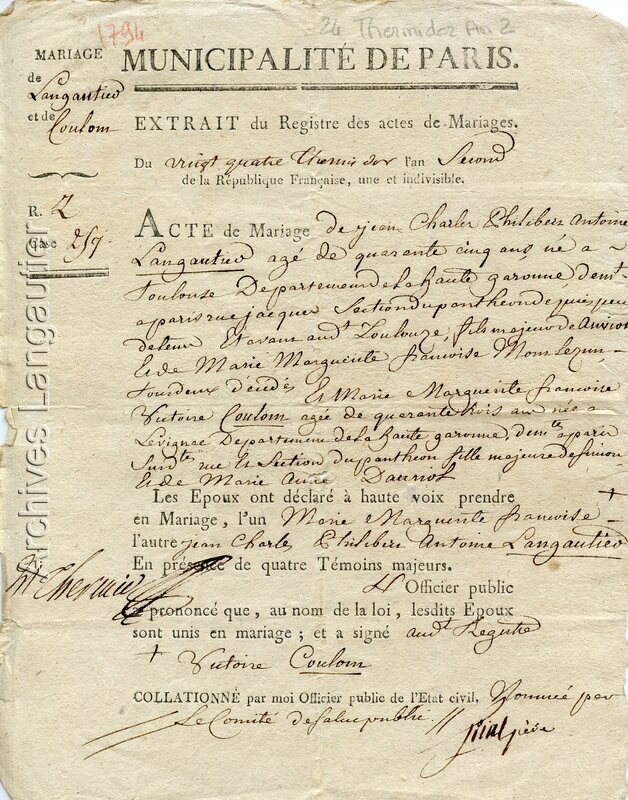 1794
24 Thermidor An 2
MARIAGE
de
Langautier
et de
Coulom
R. 2
Case 259
MUNICIPALITÉ DE PARIS.
EXTRAIT du Registre des actes de Mariages.
Du vingt quatre Thermidor l'an Second
de la République Française, une et indivisible.
ACTE de Mariage de jean Charles Philibert Antoine
Langautier agé de quarante cinq ans né a
Toulouse Departement de la haute garonne demt
a paris rue jacques Section du pantheon depuis peu
de tems Et avant audt Toulouze, fils majeur de
Et de Marie Marguerite francoise Monlezun
Tous deux décédés Et Marie Marguerite francoise
Victoire Coulom agée de quarante trois ans née a
Levignac Departement de la haute garonne, demte a paris
susdte rue Et Section du pantheon fille majeure de simon
Et de Marie Anne Dauriol
Les Epoux ont déclaré à haute voix prendre +
en Mariage, l'un Marie Marguerite francoise
l'autre jean Charles Philibert Antoine Langautier
En présence de quatre Témoins majeurs.
Officier public
a prononcé que, au nom de la loi, lesdits Epoux
sont unis en mariage ; et a signé audt Registre
+ Victoire Coulom
COLLATIONNÉ par moi Officier public de l'Etat civil, Nommé par
Le Comité de Salut public.
père
Archives Langautier